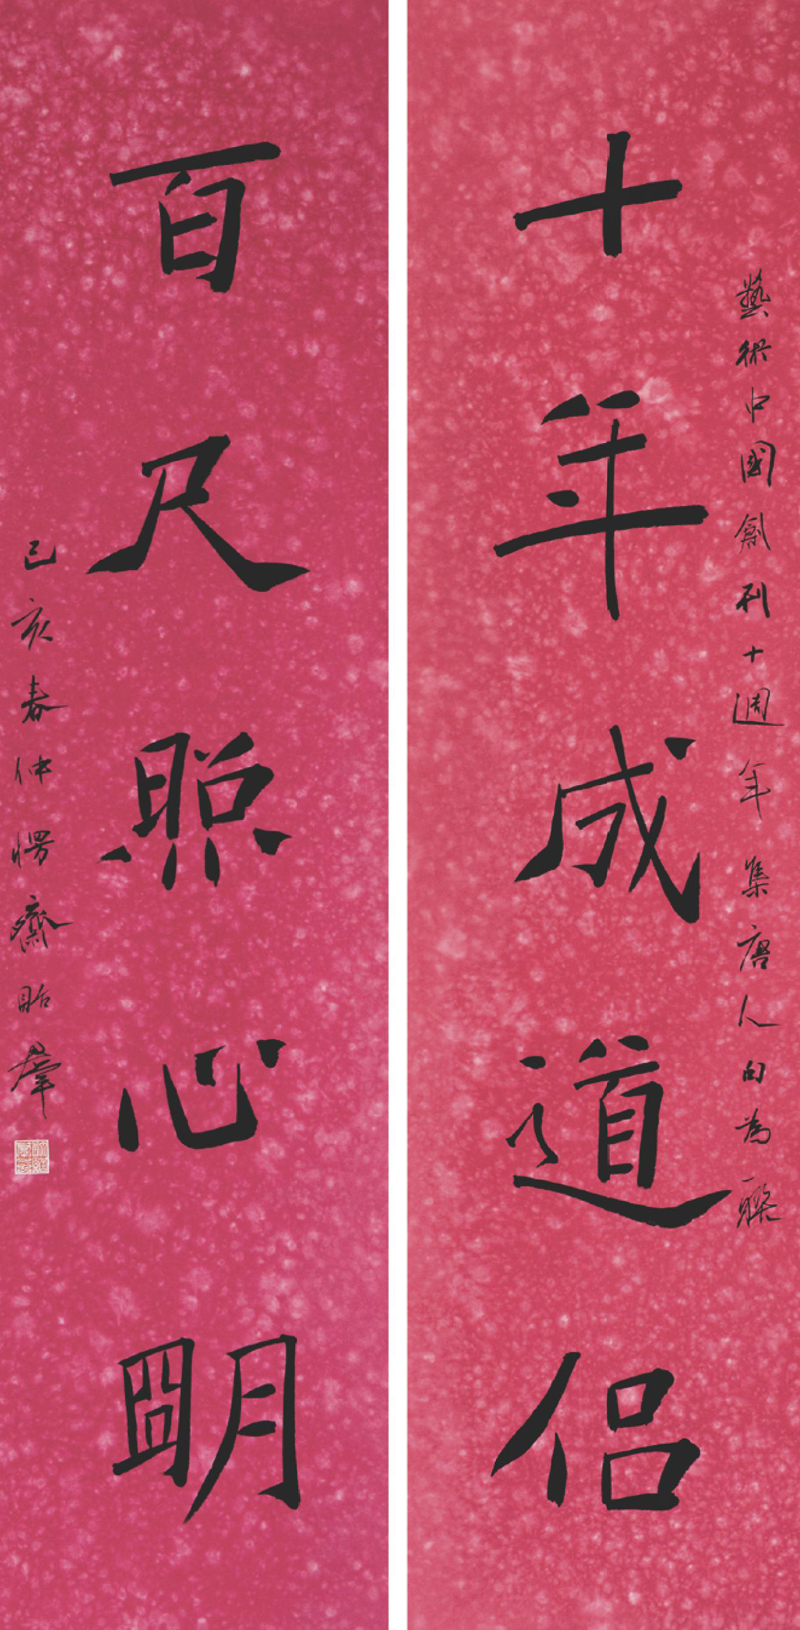 藝術中國創刊十週年集唐人句為聯
十年成道侶
百尺照心明
己亥春仲愕齋貽羣